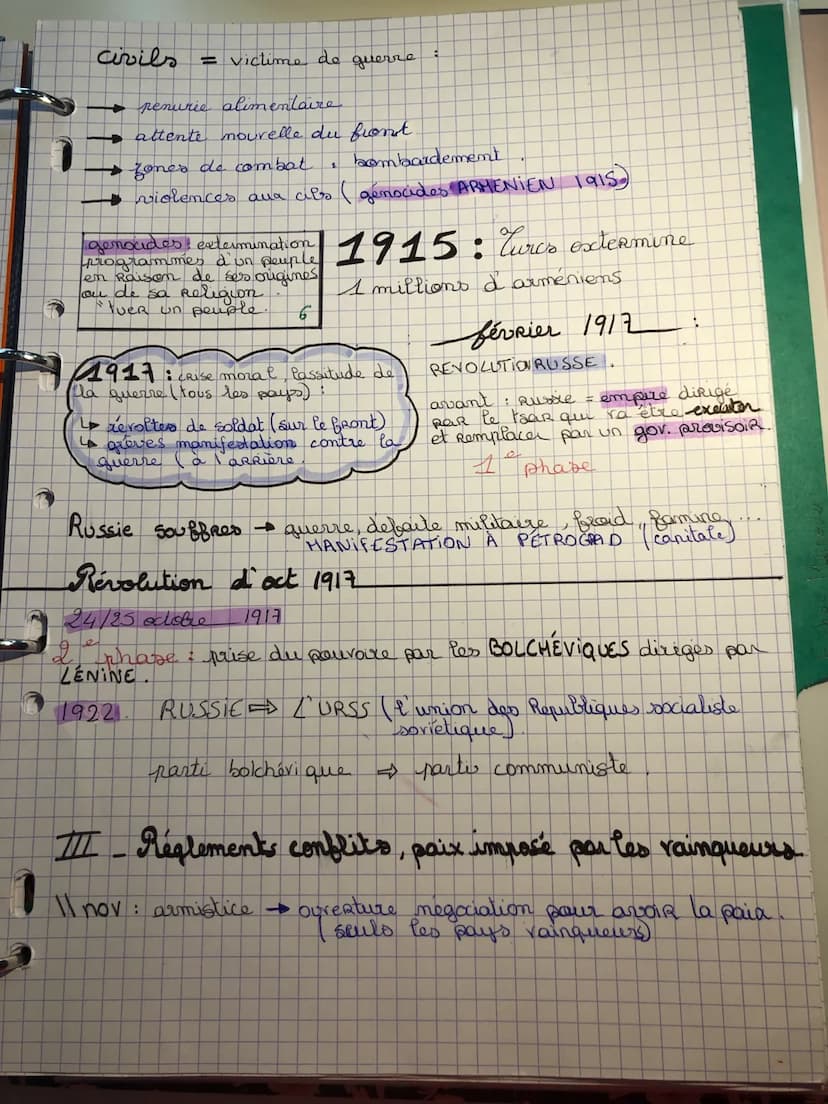 civils = victime de guerre :
→ penurie alimentaire
→ attente nouvelle du front
→ zones de combat, bombardement.
→ violences aux cils (génocides ARMENIEN 1915)
genocides: extermination
programmées d'un peuple
en RAISON de ses origines
ou de sa Religion.
"tuer un peuple. 6
1915 : Turcs extermine
1 millions d'arméniens
février 1917 :
REVOLUTION RUSSE.
avant : Russie = empire dirigé
PAR le tsar qui va être executer
et Remplacer par un gov. provisoir.
1e phase
1917 : crise moral, lassitude de
la guerre (tous les pays) :
↳ révoltes de soldat (sur le front)
↳ grèves manifestation contre la
guerre (à l'arrière.
Russie souffres → guerre, défaite militaire, froid, famine...
MANIFESTATION À PÉTROGRAD (capitale)
Révolution d'oct 1917
24/25 octobre 1917
2e phase : prise du pouvoire par les BOLCHÉViQUES dirigés par
LÉNINE.
1922. RUSSIE ⇒ L'URSS (l'union des Republiques socialiste
soviétique).
parti bolchévique ⇒ partis communiste.
III - Réglements conflits, paix imposé par les vainqueurs
11 nov : armistice → ouverture négociation pour avoir la paix.
(seuls les pays vainqueurs)